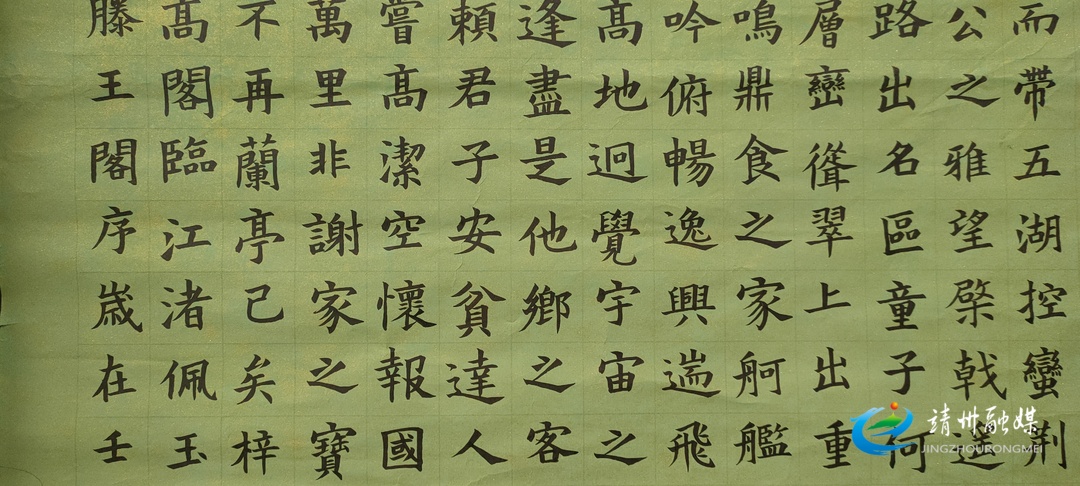 而帶五湖控蠻荆
公之雅望棨戟遥
路出名區童子何
層巒聳翠上出重
鳴鼎食之家舸艦
吟俯暢逸興遄飛
髙地迥覺宇宙之
逢盡是他鄉之客
賴君子安貧達人
嘗髙潔空懷報國
萬里非謝家之寶
不再蘭亭已矣梓
髙閣臨江渚佩玉
滕王閣序嵗在壬
靖州融媒
JINGZHOURONGMEI